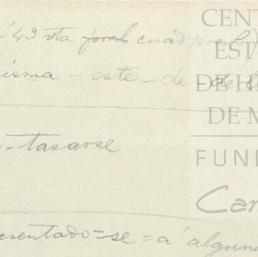 43 vta cuad
isma = este - de - de
- tasarse
esentado = se = á algun
CENT
EST
DE H
DE M
FUN
Car